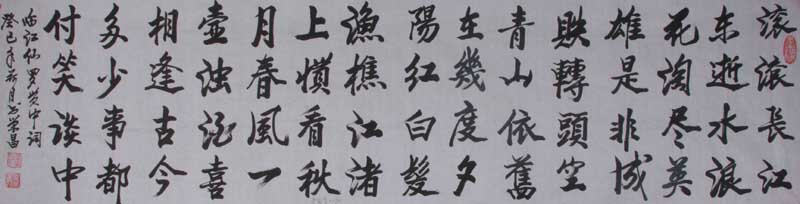 滚滚長江
东逝水浪
花淘尽英
雄是非成
敗轉頭空
青山依舊
在幾度夕
陽紅白髮
漁樵江渚
上慣看秋
月春風一
壺浊酒喜
相逢古今
多少事都
付笑谈中
临江仙罗贯中词
癸巳年荷月书荣昌